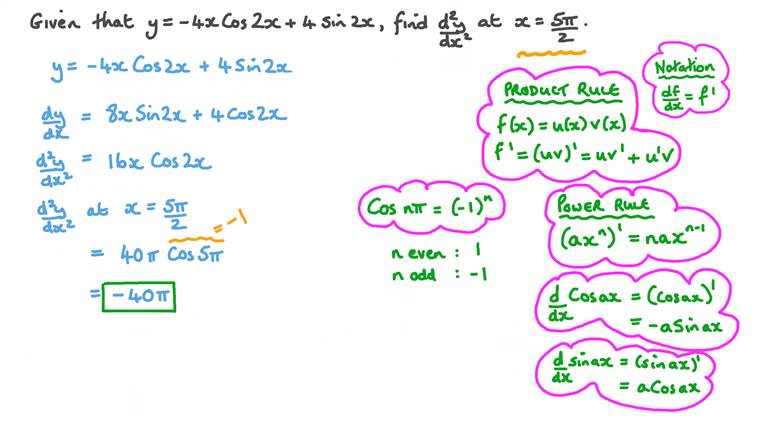 Given that y = -4x Cos 2x + 4 Sin 2x, find d²y/dx² at x = 5π/2.
y = -4x Cos2x + 4 Sin 2x
dy/dx = 8x Sin2x + 4 Cos2x
d²y/dx² = 16x Cos2x
d²y/dx² at x = 5π/2
= 40π Cos 5π = -1
= -40π
Cos nπ = (-1)ⁿ
n even : 1
n odd : -1
PRODUCT RULE
f(x) = u(x) v(x)
f' = (uv)' = uv' + u'v
Notation
df/dx = f'
POWER RULE
(axⁿ)' = naxⁿ⁻¹
d/dx Cosax = (cosax)'
= -a Sin ax
d/dx sinax = (sinax)'
= a Cosax